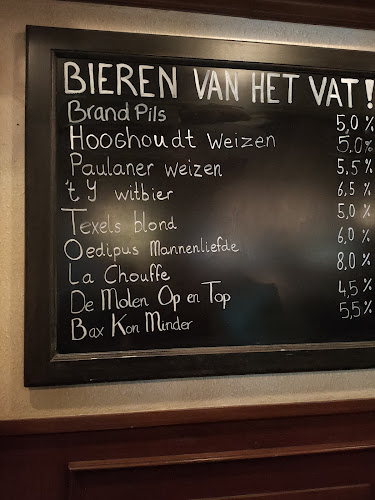 BIEREN VAN HET VAT!
Brand Pils 5,0 %
Hooghoudt Weizen 5,0%
Paulaner weizen 5,5 %
't Y witbier 6,5 %
Texels blond 5,0 %
Oedipus Mannenliefde 6,0 %
La Chouffe 8,0 %
De Molen Op en Top 4,5 %
Bax Kon Minder 5,5%